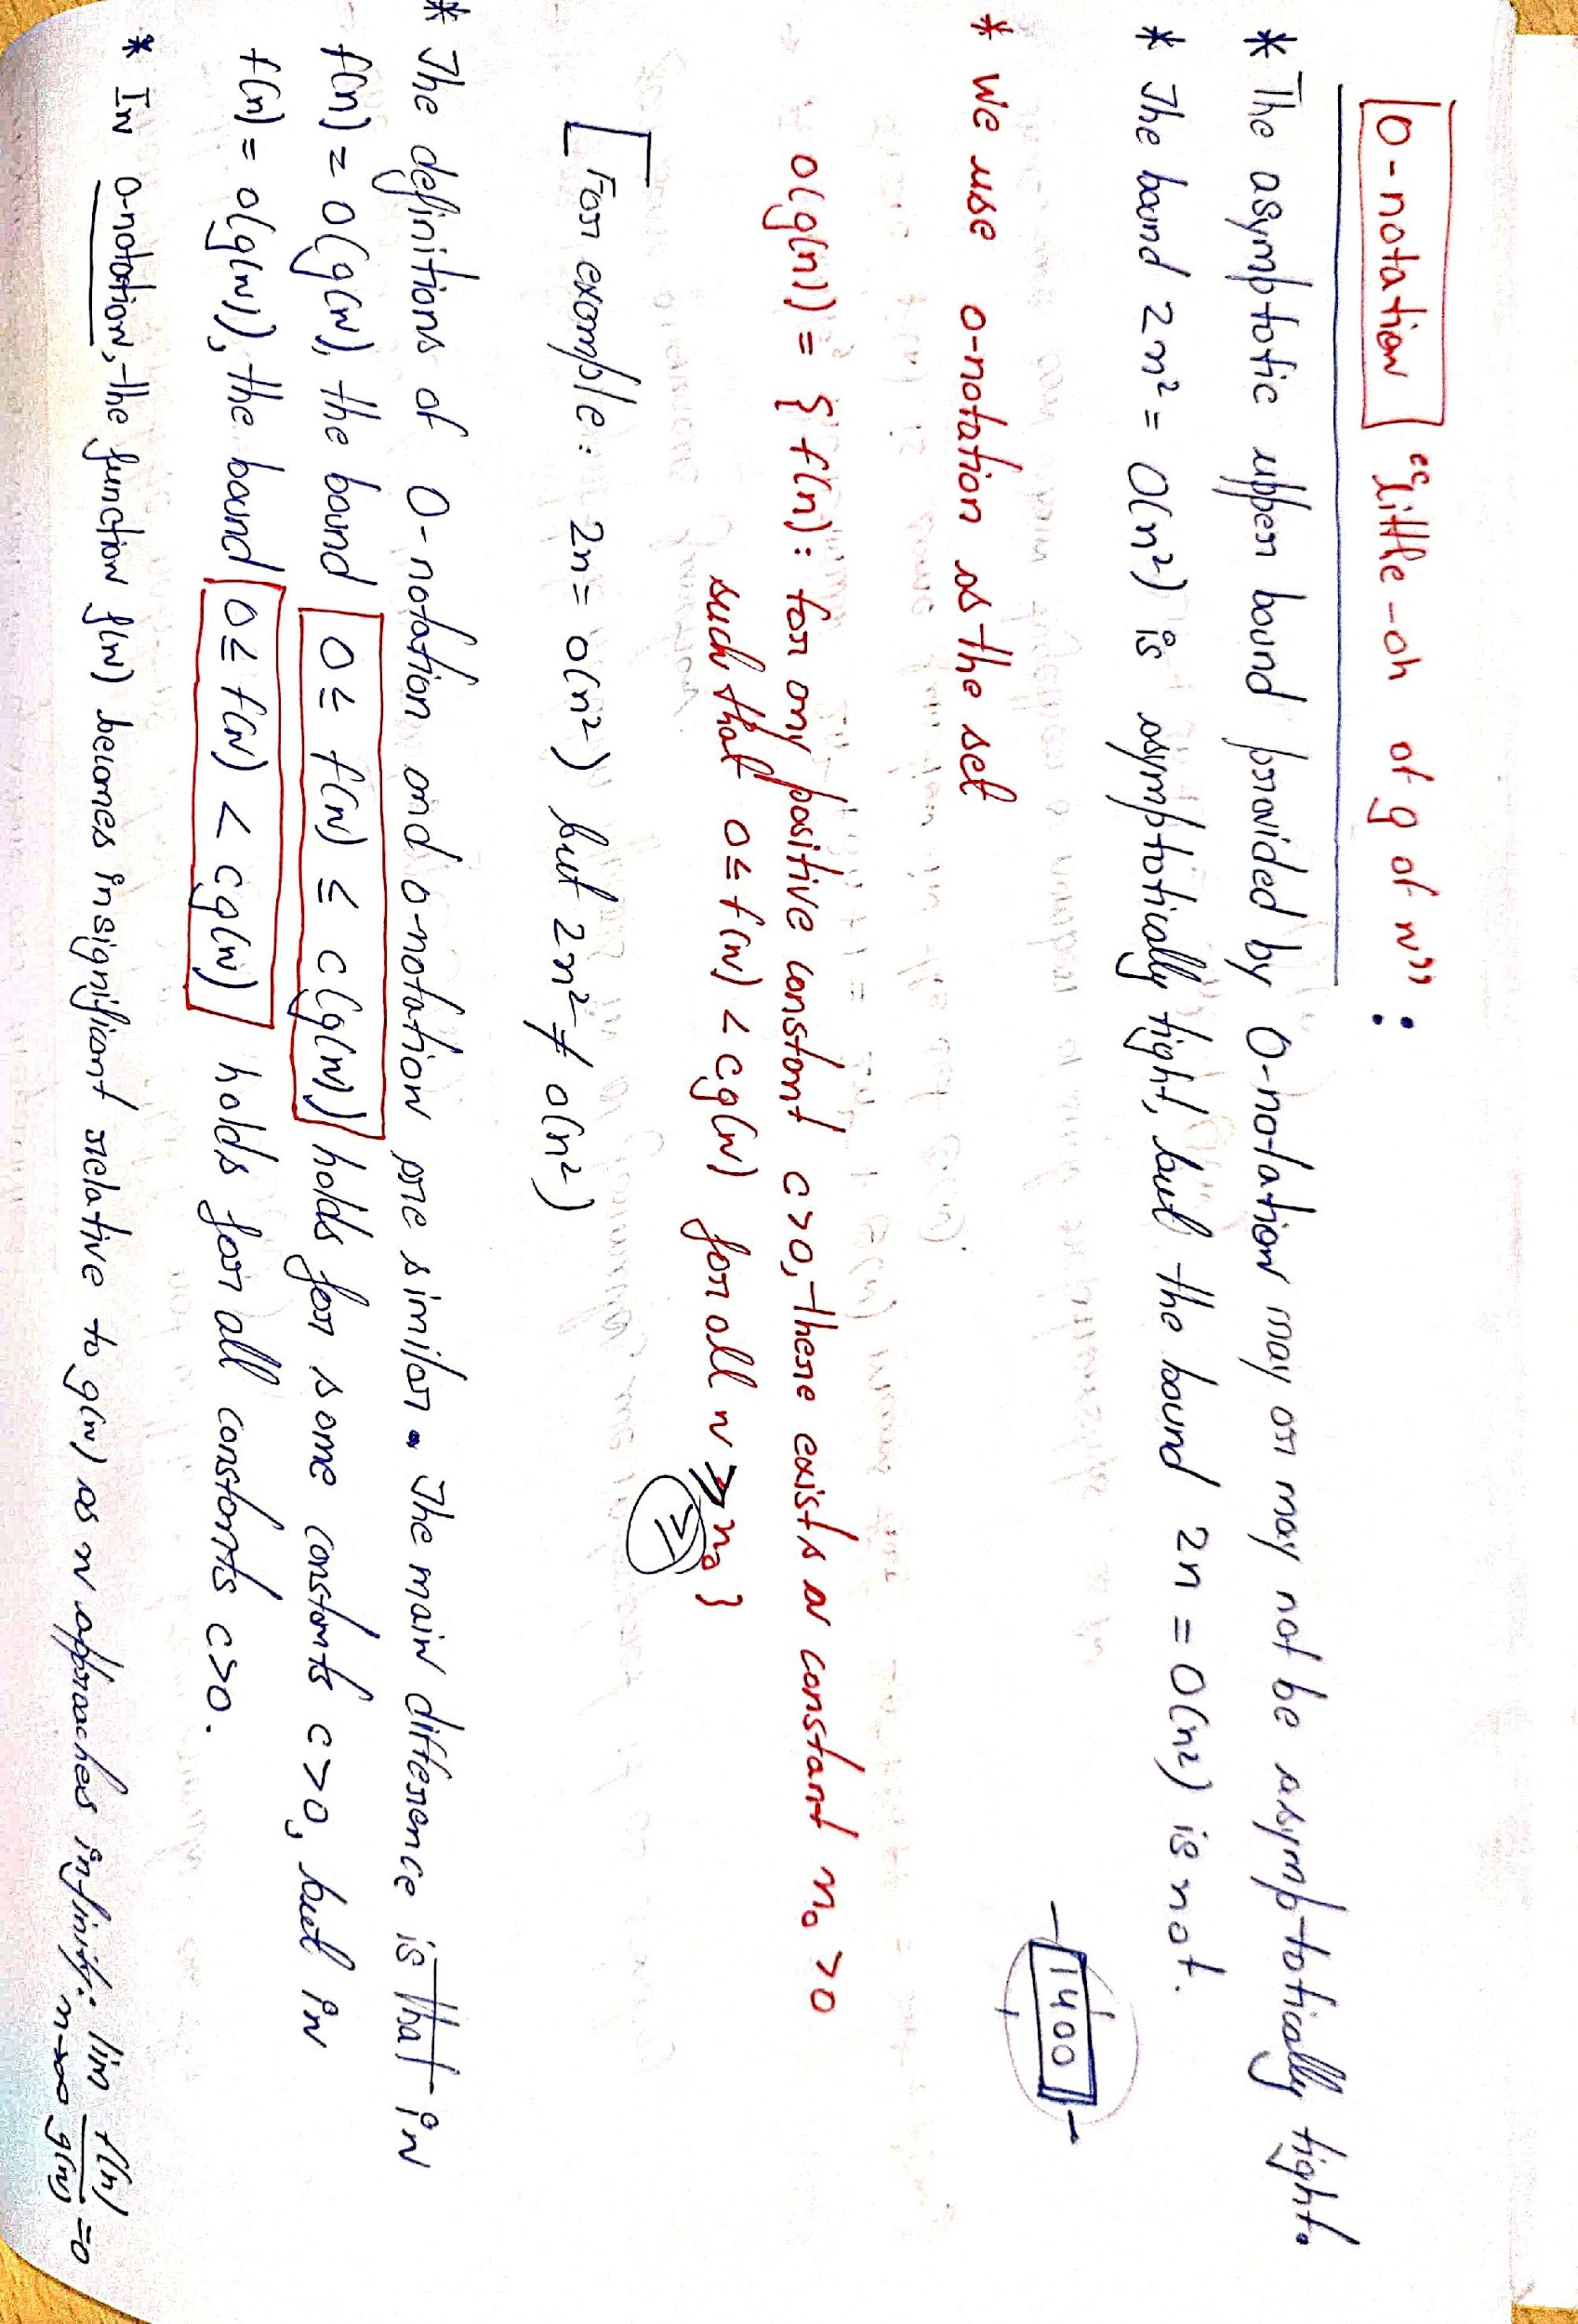 o-notation "little-oh of g of n" :
* The asymptotic upper bound provided by O-notation may or may not be asymptotically tight.
* The bound 2n² = O(n²) is asymptotically tight, but the bound 2n = O(n²) is not.
1400
* We use o-notation as the set
o(g(n)) = { f(n): for any positive constant c>0, there exists a constant n₀ >0
such that 0 ≤ f(n) < cg(n) for all n ≥ n₀ }
≥
[For example: 2n = o(n²) but 2n² ≠ o(n²)
* The definitions of O-notation and o-notation are similar. The main difference is that in
f(n) = O(g(n), the bound 0 ≤ f(n) ≤ c(g(n)) holds for some constants c>0, but in
f(n) = o(g(n)), the bound 0 ≤ f(n) < cg(n) holds for all constants c>0.
* In o-notation, the function f(n) becomes insignificant relative to g(n) as n approaches infinity: lim n→∞ f(n)/g(n) = 0